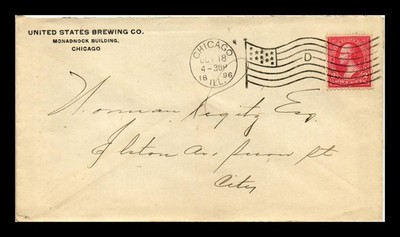 UNITED STATES BREWING CO.
MONADNOCK BUILDING,
CHICAGO
CHICAGO
OCT 18
4-30P
18 96
ILL.
D
Norman Esq
Elston Av St
City